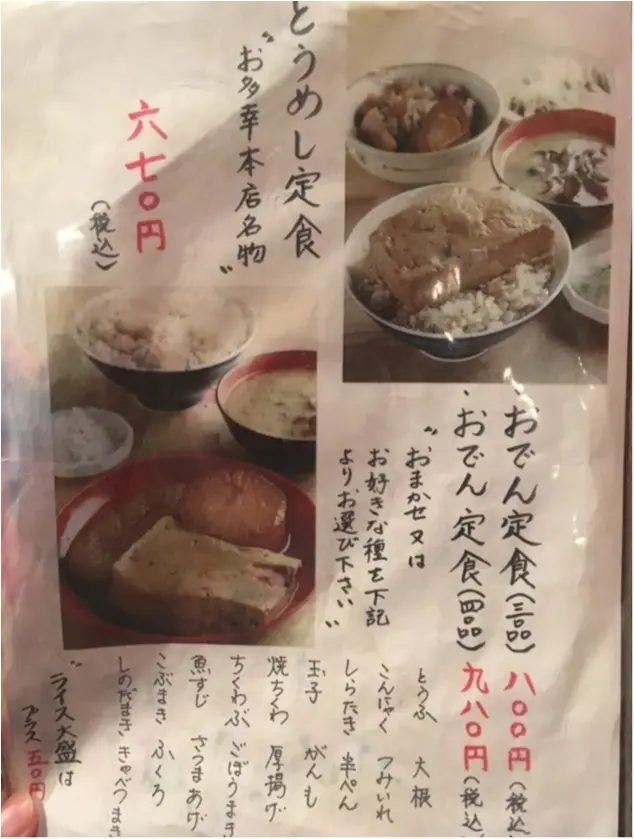 とうめし定食
"お多幸本店名物"
六七〇円
(税込)
・おでん定食(三品) 八〇〇円(税込
・おでん定食(四品) 九八〇円(税込)
"おまかせ又は
お好きな種を下記
よりお選び下さい"
とうふ 大根
こんにゃく つみいれ
しらたき 半ぺん
玉子 がんも
焼ちくわ 厚揚げ
ちくわぶ ごぼうまき
魚すじ さつまあげ
こぶまき ふくろ
しのだまき きゃべつまき
"ライス大盛は
プラス 五〇円